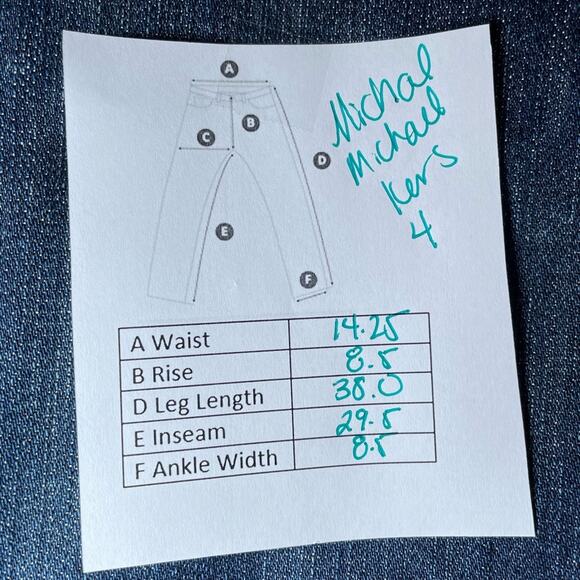 A
B
C
D
E
F
Michal
Michael
Kors
4
A Waist 14.25
B Rise 8.5
D Leg Length 38.0
E Inseam 29.5
F Ankle Width 8.5